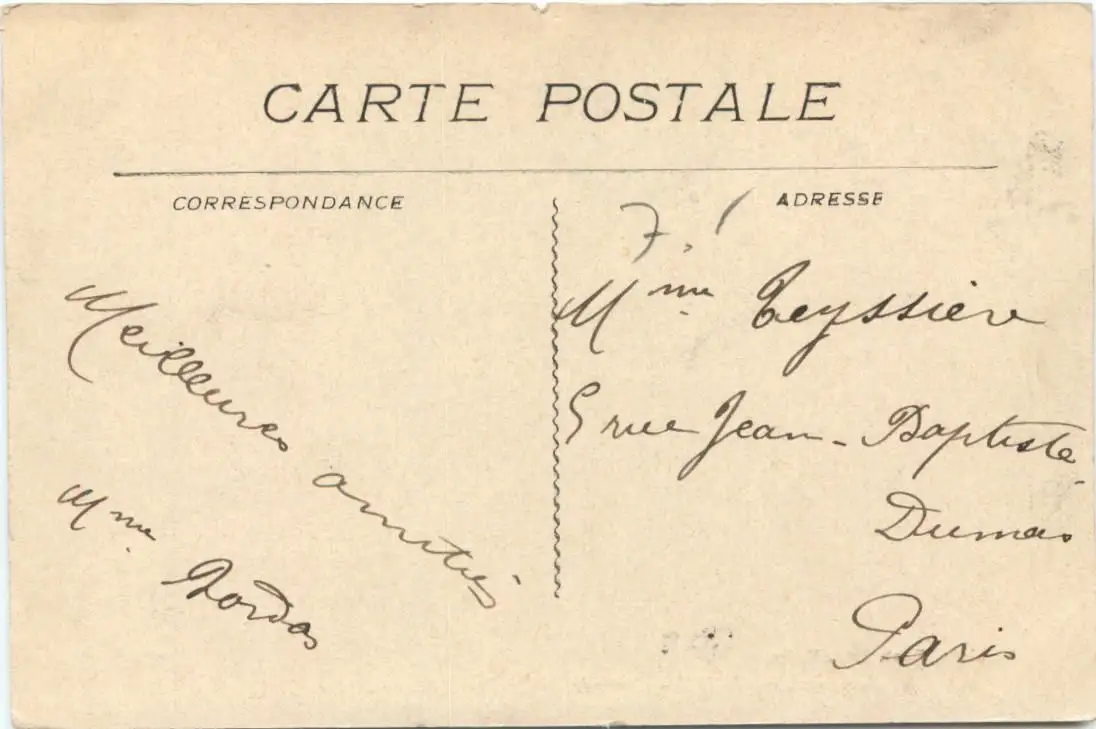 CARTE POSTALE
CORRESPONDANCE
Meilleures amitiés
Mme Bordas
ADRESSE
7.
Mme Teyssière
5 rue Jean-Baptiste
Dumas
Paris